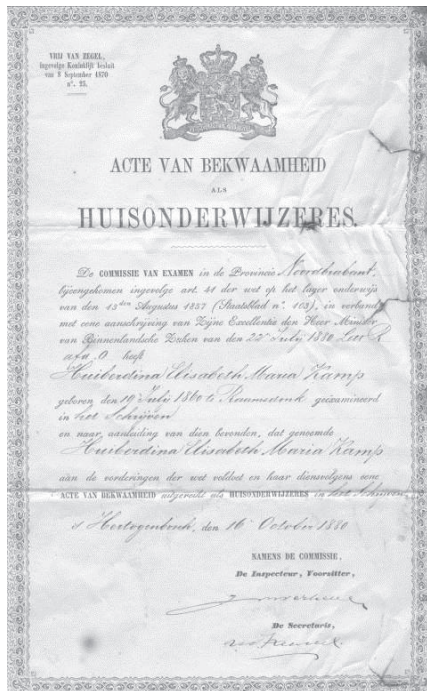 VRIJ VAN ZEGEL,
ingevolge Koninklijk besluit
van 8 September 1870
nº. 25.
ACTE VAN BEKWAAMHEID
ALS
HUISONDERWIJZERES.
De COMMISSIE VAN EXAMEN in de Provincie Noordbrabant,
bijeengekomen ingevolge art. 41 der wet op het lager onderwijs
van den 13den Augustus 1857 (Staatsblad nº. 103), in verband
met eene aanschrijving van Zijne Excellentie den Heer Minister
van Binnenlandsche Zaken van den 22 July 1880
afd. O heeft
Huiberdina Elisabeth Maria Kamp
geboren den 19 July 1860 te Raamsdonk geëxamineerd
in het Schrijven
en naar aanleiding van dien bevonden, dat genoemde
Huiberdina Elisabeth Maria Kamp
aan de vorderingen der wet voldoet en haar dienvolgens eene
ACTE VAN BEKWAAMHEID uitgereikt als HUISONDERWIJZERES in het Schrijven.
's Hertogenbosch, den 16 October 1880
NAMENS DE COMMISSIE,
De Inspecteur, Voorzitter,
De Secretaris,